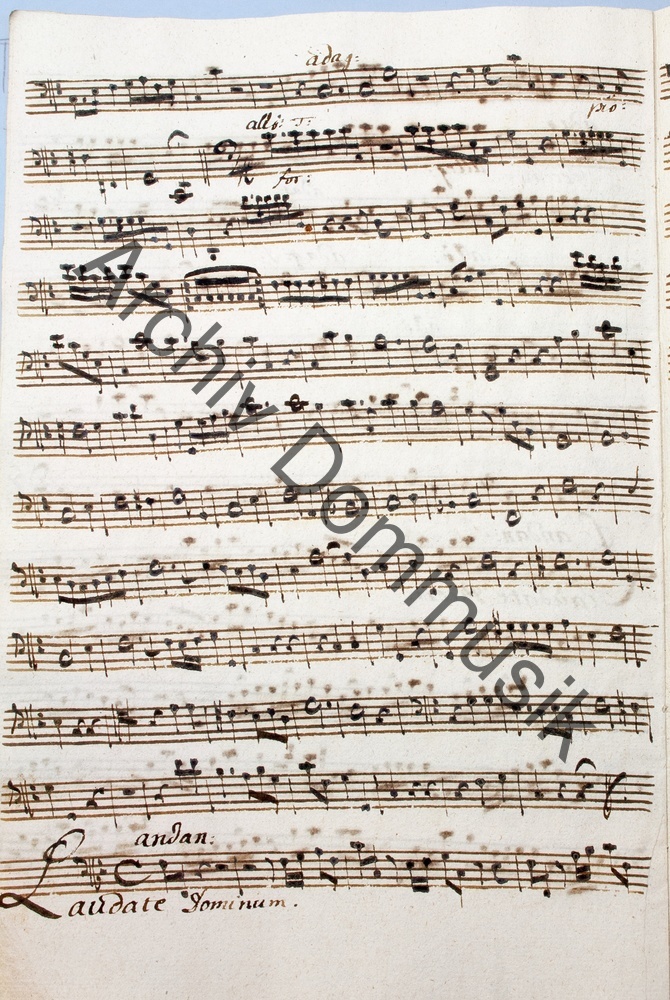 adag:
pio:
allo:
for:
Archiv Dommusik
andan:
Laudate Dominum.